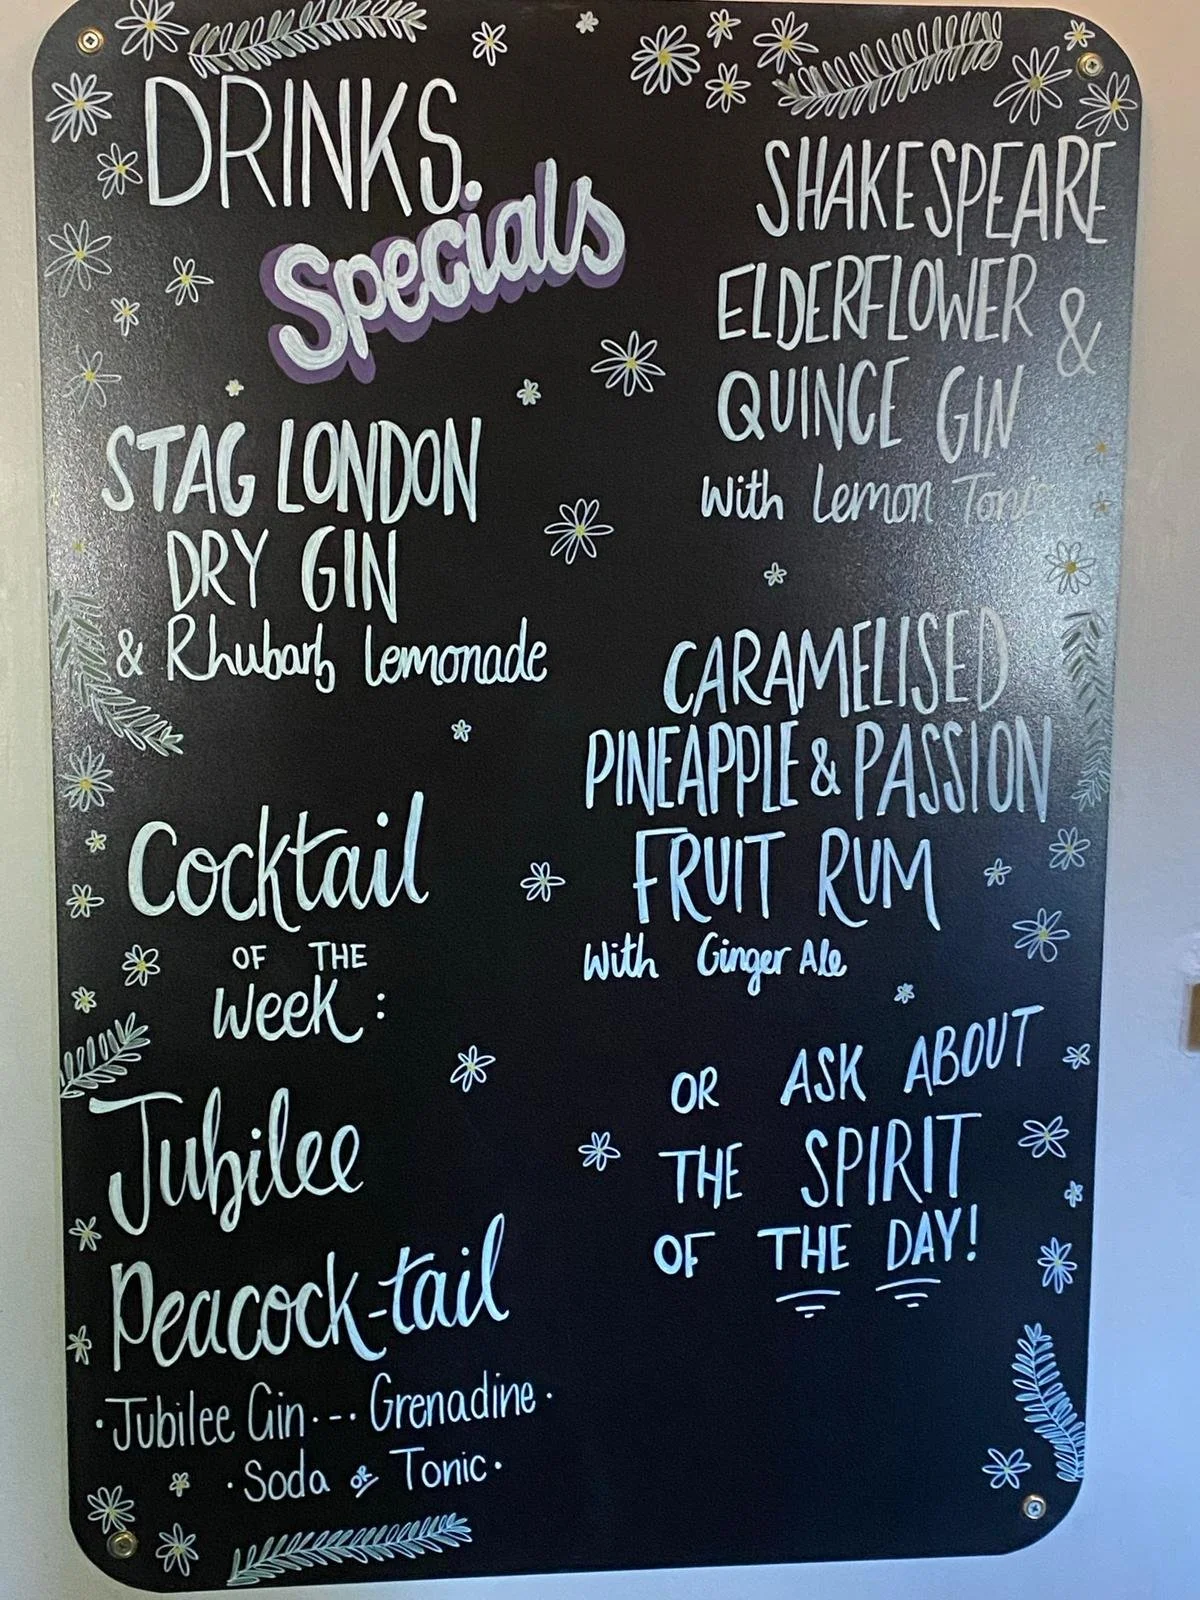 DRINKS.
Specials
STAG LONDON
DRY GIN
& Rhubarb Lemonade
Cocktail
OF THE
Week:
Jubilee
Peacock-tail
·Jubilee Gin·--· Grenadine·
·Soda OR Tonic·
SHAKESPEARE
ELDERFLOWER &
QUINCE GIN
With Lemon Tonic
CARAMELISED
PINEAPPLE & PASSION
FRUIT RUM
With Ginger Ale
OR ASK ABOUT
THE SPIRIT
OF THE DAY!